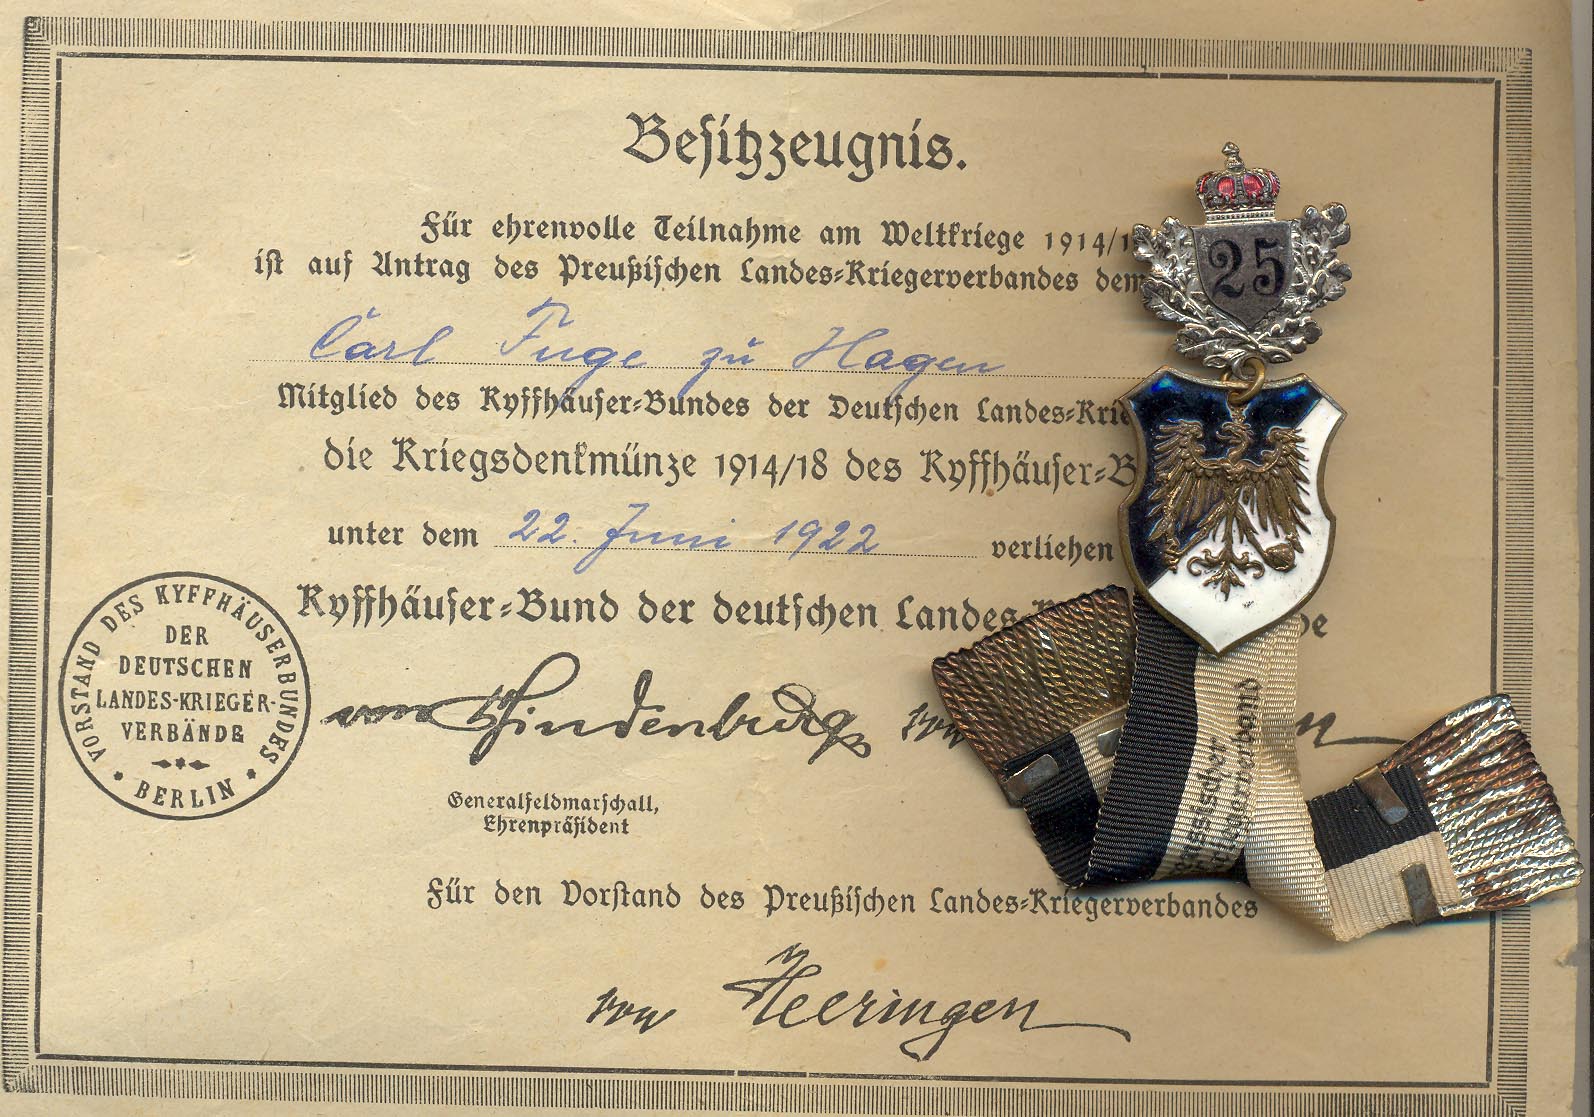 Besitzzeugnis.
Für ehrenvolle Teilnahme am Weltkriege 1914/1
ist auf Antrag des Preußischen Landes-Kriegerverbandes dem
Carl Fuge zu Hagen
Mitglied des Kyffhäuser-Bundes der Deutschen Landes-Krie
die Kriegsdenkmünze 1914/18 des Kyffhäuser-B
unter dem 22. Juni 1922 verliehen
Kyffhäuser-Bund der deutschen Landes-K
von Hindenburg von
Generalfeldmarschall,
Ehrenpräsident
Für den Vorstand des Preußischen Landes-Kriegerverbandes
von Heeringen
VORSTAND DES KYFFHÄUSERBUNDES
DER
DEUTSCHEN
LANDES-KRIEGER-
VERBÄNDE
BERLIN
25